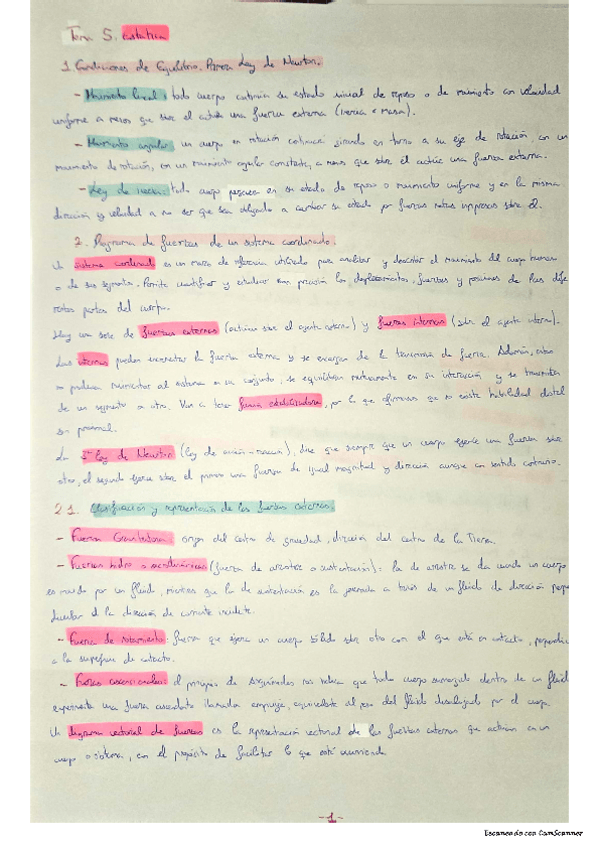 Tema 5. estatica
1. Condiciones de Equilibrio. Primera Ley de Newton.
- Momento lineal: todo cuerpo continúa su estado inicial de reposo o de movimiento con velocidad
uniforme a menos que sobre el actúe una fuerza externa (inercia e masa).
- Momento angular: un cuerpo en rotación continuará girando en torno a su eje de rotación, con un
movimiento de rotación, con un momento angular constante, a menos que sobre el actúe una fuerza externa.
- Ley de inercia: todo cuerpo persevera en su estado de reposo o movimiento uniforme y en la misma
dirección y velocidad a no ser que sea obligado a cambiar su estado por fuerzas netas impresas sobre él.
2. Diagrama de fuerzas de un sistema coordinado.
Un sistema coordinado es un marco de referencia utilizado para analizar y describir el movimiento del cuerpo humano
o de sus segmentos. Permite cuantificar y estudiar con precisión los desplazamientos, fuerzas y posiciones de las dife
rentes partes del cuerpo.
Hay una serie de fuerzas externas (actúan sobre el agente externo) y fuerzas internas (sobre el agente interno).
Las internas pueden incrementar la fuerza externa y se encargan de la transmisión de fuerza. Además, estas
no producen movimiento al sistema en su conjunto, se equilibran mutuamente en su interacción y se transmiten
de un segmento a otro. Van a tener fuerza estabilizadora, por lo que afirmamos que no existe habilidad distal
sin proximal.
La 3ª Ley de Newton (ley de acción-reacción), dice que siempre que un cuerpo ejerce una fuerza sobre
otro, el segundo ejerce sobre el primero una fuerza de igual magnitud y dirección aunque con sentido contrario.
2.1. Clasificación y representación de las fuerzas externas.
- Fuerza Gravitatoria: origen del centro de gravedad, dirección del centro de la Tierra.
- Fuerzas hidro o aerodinámicas (fuerza de arrastre o sustentación): la de arrastre se da cuando un cuerpo
es movido por un fluido, mientras que la de sustentación es la generada a través de un fluido de dirección perpe
ndicular a la dirección de corriente incidente.
- Fuerza de rozamiento: fuerza que ejerce un cuerpo sólido sobre otro con el que está en contacto, perpendicu
a la superficie de contacto.
- Fuerzas ascensionales: el principio de Arquímedes nos indica que todo cuerpo sumergido dentro de un fluido
experimenta una fuerza ascendente llamada empuje, equivalente al peso del fluido desalojado por el cuerpo.
Un diagrama vectorial de fuerzas es la representación vectorial de las fuerzas externas que actúan en un
cuerpo o sistema, con el propósito de facilitar lo que está ocurriendo
-1-
Escaneado con CamScanner